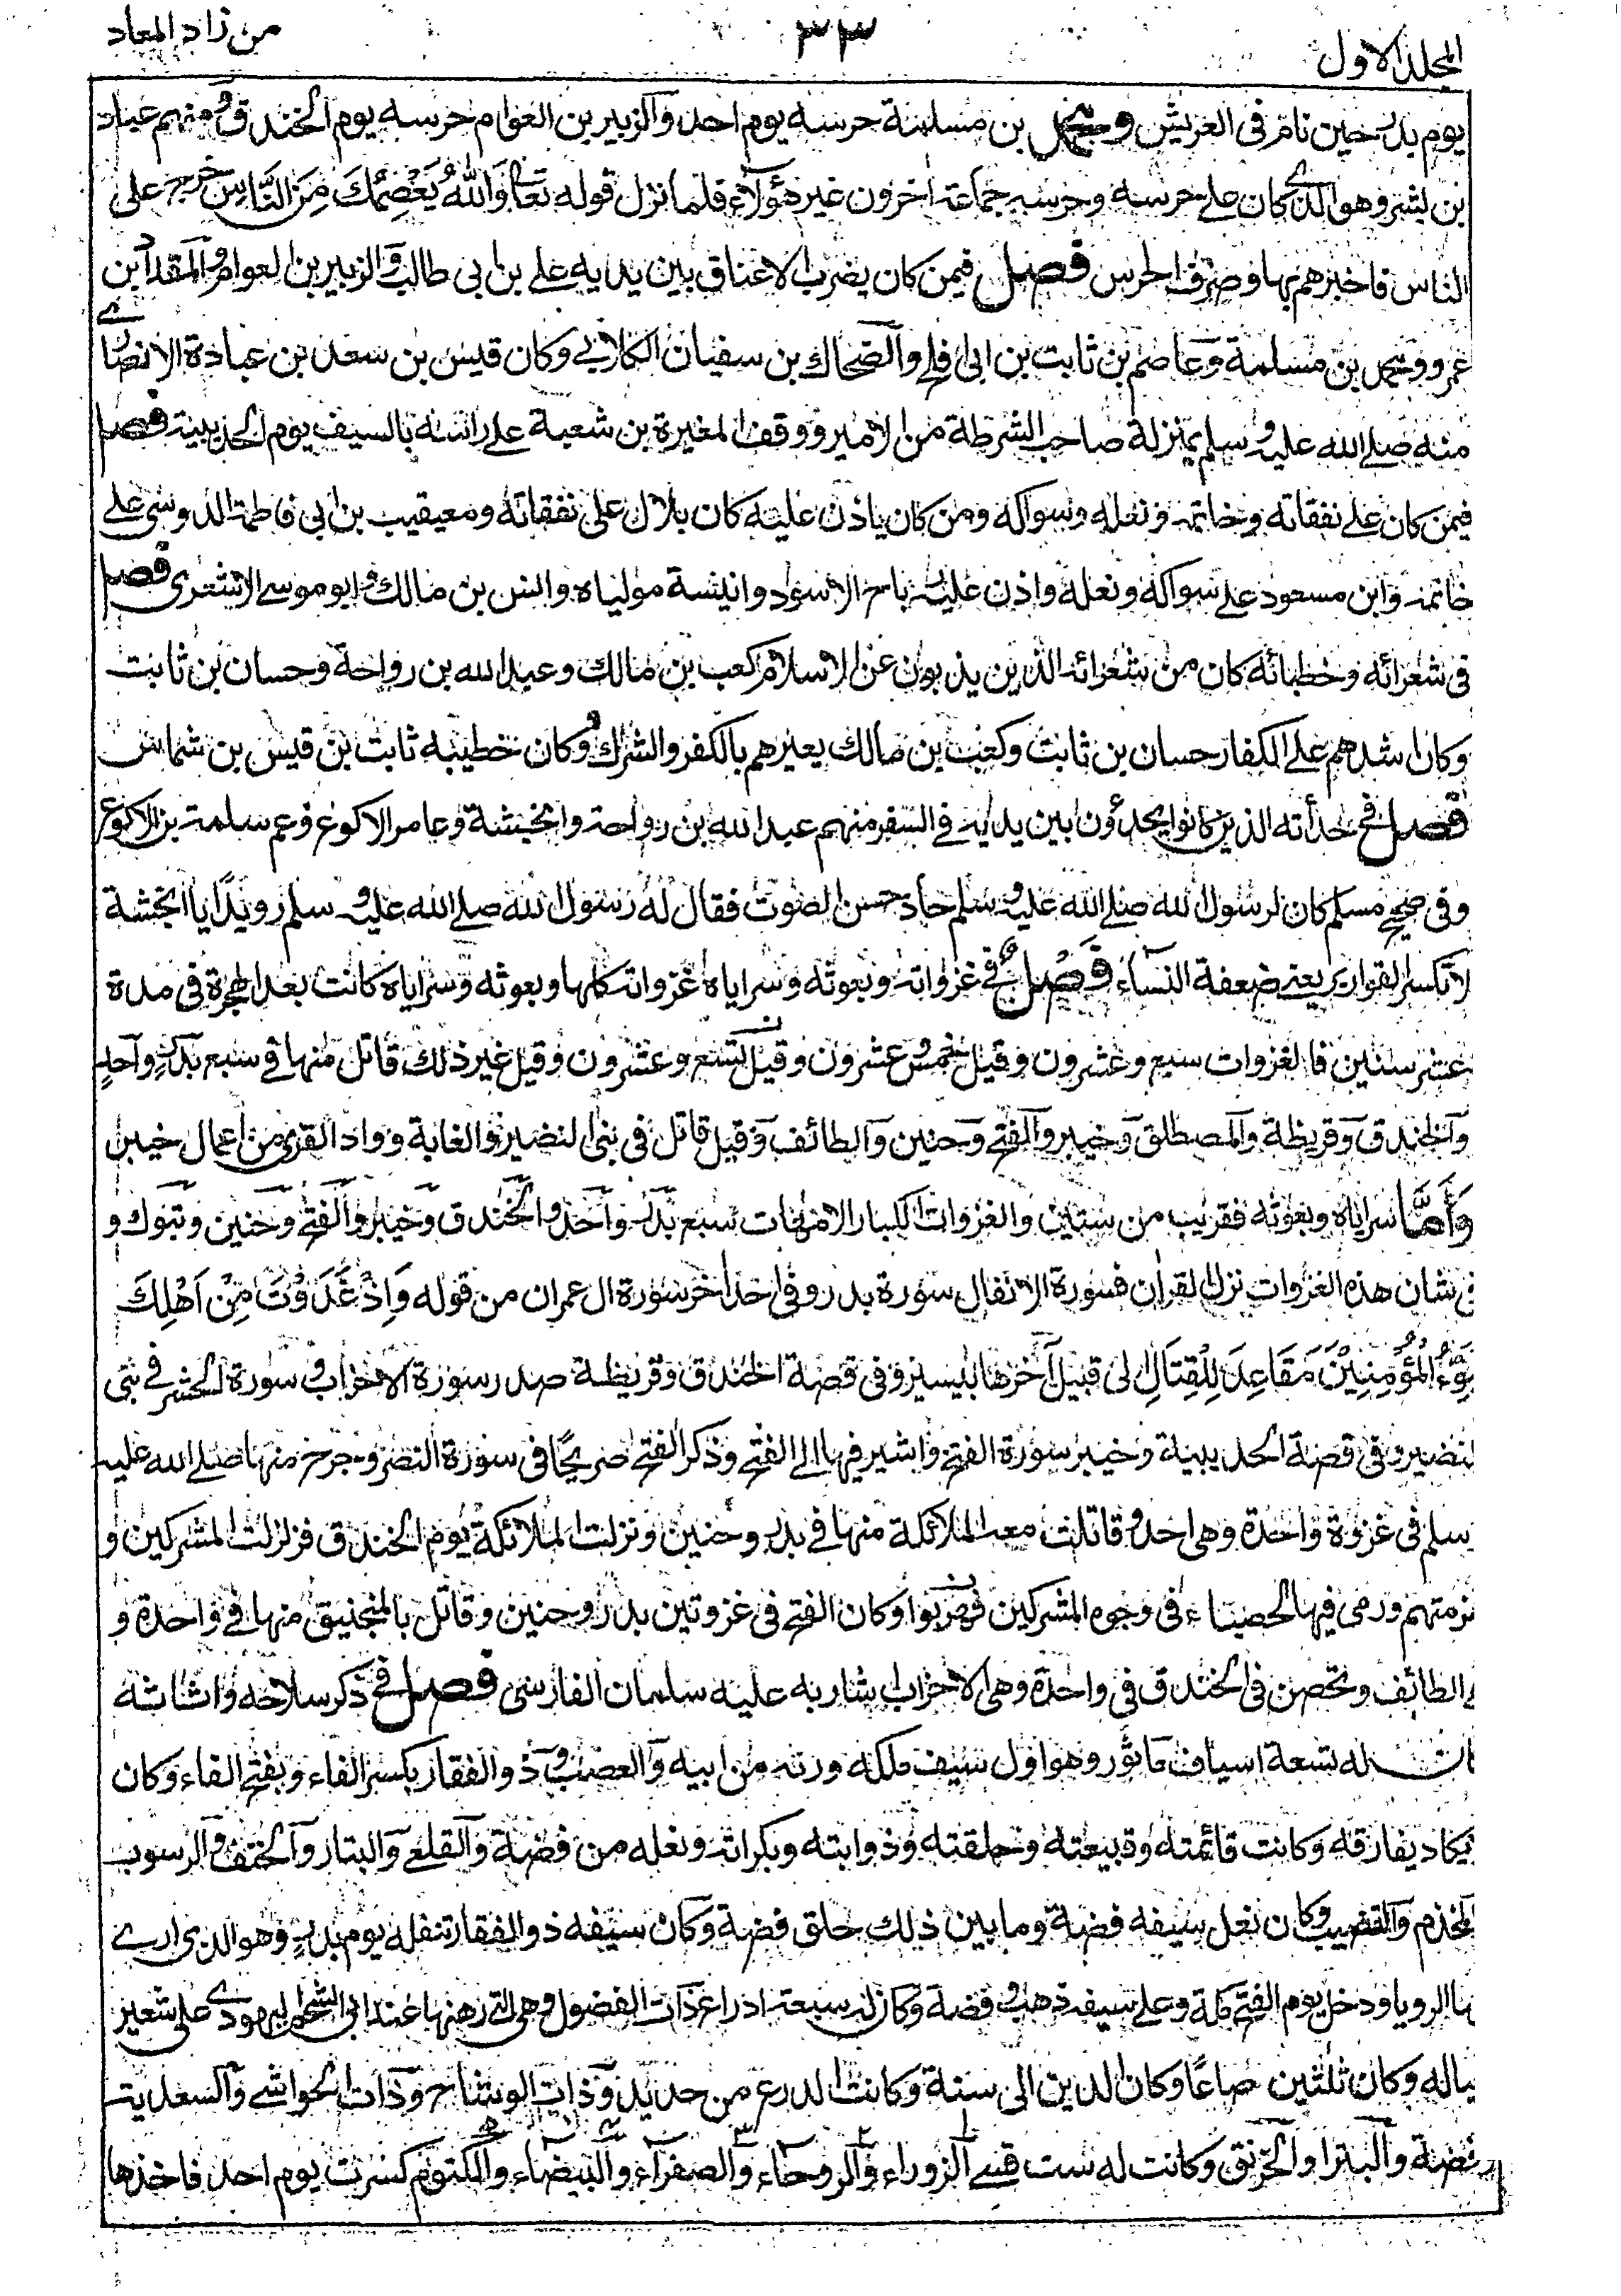 المجلد الاول
٣٣
من زاد المعاد
يوم بدر حين نام فى العريش ومحمد بن مسلمة حرسه يوم احد والزبير بن العوام حرسه يوم الخندق ومنهم عباد
بن بشر وهو الذى كان على حرسه وحرسه جماعة اخرون غير هؤلاء فلما نزل قوله تعالى وَاللهُ يَعْصِمُكَ مِنَ النَّاسِ خرج على
الناس فاخبرهم بها وصرف الحرس فصل فيمن كان يضرب الاعناق بين يديه على بن ابى طالب والزبير بن العوام والمقداد بن
عمرو ومحمد بن مسلمة وعاصم بن ثابت بن ابى افلح والضحاك بن سفيان الكلابي وكان قيس بن سعد بن عبادة الانصارى
منه صلى الله عليه وسلم بمنزلة صاحب الشرطة من الامير ووقف المغيرة بن شعبة على راسه بالسيف يوم الحديبية فصل
فيمن كان على نفقاته وخاتمه ونعله وسواكه ومن كان ياذن عليه كان بلال على نفقاته ومعيقيب بن ابى فاطمة الدوسى على
خاتمه وابن مسعود على سواكه ونعله واذن عليه رباح الاسود وانيسة مولياه وانس بن مالك وابو موسى الاشعرى فصل
فى شعرائه وخطبائه كان من شعرائه الذين يذبون عن الاسلام كعب بن مالك وعبد الله بن رواحة وحسان بن ثابت
وكان اشدهم على الكفار حسان بن ثابت وكعب بن مالك يعيرهم بالكفر والشرك وكان خطيبه ثابت بن قيس بن شماس
فصل فى حدأته الذين كانوا يحدؤن بين يديه فى السفر منهم عبد الله بن رواحة وانجشة وعامر الاكوع وعم سلمة بن الاكوع
وفى صحيح مسلم كان لرسول الله صلى الله عليه وسلم حاد حسن الصوت فقال له رسول الله صلى الله عليه وسلم رويدًا يا انجشة
لا تكسر القوارير يعنى ضعفة النساء فصل فى غزواته وبعوثه وسراياه غزواته كلها وبعوثه وسراياه كانت بعد الهجرة فى مدة
عشر سنين فالغزوات سبع وعشرون وقيل خمس وعشرون وقيل تسع وعشرون وقيل غير ذلك قاتل منها فى سبع بدر واحد
والخندق وقريظة والمصطلق وخيبر والفتح وحنين والطائف وقيل قاتل فى بنى النضير والغابة ووادى القرى من اعمال خيبر
وَأَمَّا سراياه وبعوثه فقريب من ستين والغزوات الكبار الامهات سبع بدر واحد والخندق وخيبر والفتح وحنين وتبوك و
فى شان هذه الغزوات نزل القران فسورة الانفال سورة بدر وفى احد اخر سورة ال عمران من قوله وَاِذْ غَدَوْتَ مِنْ اَهْلِكَ
تُبَوِّءُ الْمُؤْمِنِيْنَ مَقَاعِدَ لِلْقِتَالِ الى قبيل آخرها بيسير وفى قصة الخندق وقريظة صدر سورة الاحزاب وسورة الحشر فى بنى
النضير وفى قصة الحديبية وخيبر سورة الفتح واشير فيها الى الفتح وذكر الفتح صريحًا فى سورة النصر وجرح منها صلى الله عليه
وسلم فى غزوة واحدة وهى احد وقاتلت معه الملائكة منها فى بدر وحنين ونزلت الملائكة يوم الخندق فزلزلت المشركين و
هزمتهم ورمى فيها الحصباء فى وجوه المشركين فهربوا وكان الفتح فى غزوتين بدر وحنين وقاتل بالمنجنيق منها فى واحدة و
هى الطائف وتحصن فى الخندق فى واحدة وهى الاحزاب اشار به عليه سلمان الفارسى فصل فى ذكر سلاحه واثاثه
كانت له تسعة اسياف ماثور وهو اول سيف ملكه ورثه من ابيه والعضب وذو الفقار بكسر الفاء وبفتح الفاء وكان
يكاد يفارقه وكانت قائمته وقبيعته وحلقته وذوابته وبكراته ونعله من فضة والقلعى والبتار والحتف والرسوب
والمخذم والقضيب وكان نعل سيفه فضة وما بين ذلك حلق فضة وكان سيفه ذو الفقار تنفله يوم بدر وهو الذى ارى
فيها الرويا ودخل يوم الفتح مكة وعلى سيفه ذهب وفضة وكان له سبعة ادراع ذات الفضول وهى التى رهنها عند ابى الشحم اليهودى على شعير
لعياله وكان ثلثين صاعًا وكان الدين الى سنة وكانت الدرع من حديد وذات الوشاح وذات الحواشى والسعدية
وفضة والبترا والخرنق وكانت له ست قسى الزوراء والروحاء والصفراء والبيضاء والكتوم كسرت يوم احد فاخذها